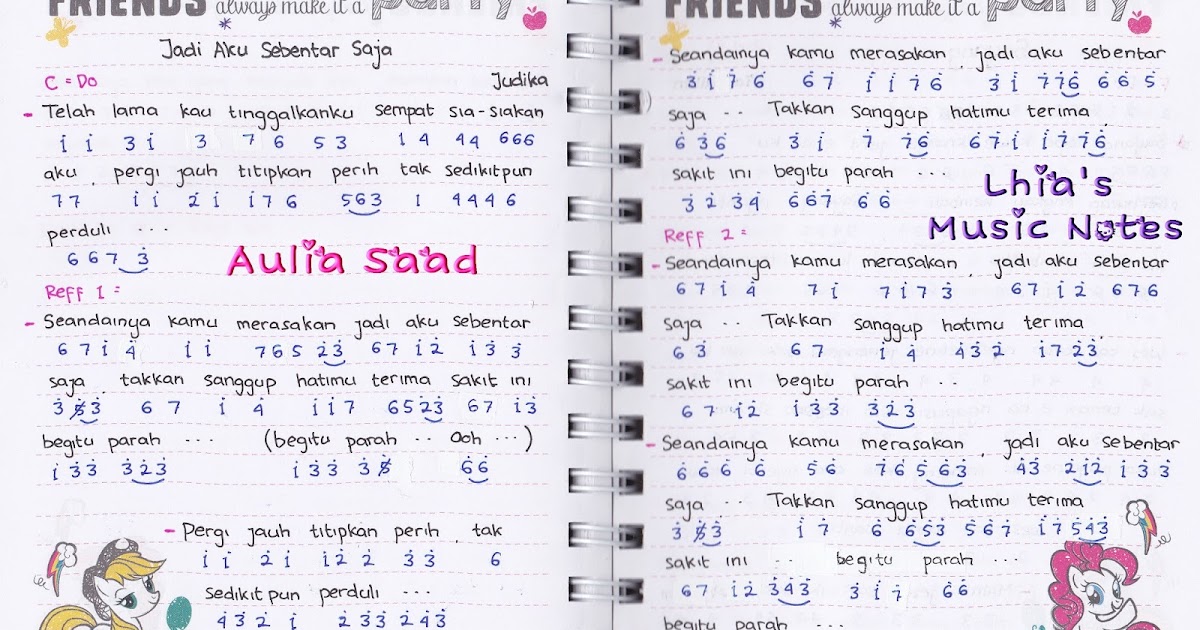 FRIENDS always make it a party
Jadi Aku Sebentar Saja
C = Do
Judika
- Telah lama kau tinggalkanku sempat sia-siakan
i̇ i̇ 3 i̇ 3 7 6 5 3 1 4 4 4 6 6 6
aku, pergi jauh titipkan perih tak sedikitpun
7 7 i̇ i̇ 2̇ i̇ i̇ 7 6 5 6 3 1 4 4 4 6
perduli ...
6 6 7 3̇
Aulia Saad
Reff 1 =
- Seandainya kamu merasakan jadi aku sebentar
6 7 i̇ 4̇ i̇ i̇ 7 6 5 2̇ 3̇ 6 7 i̇ 2̇ i̇ 3̇ 3̇
saja, takkan sanggup hatimu terima sakit ini
3̇ 3̇ 6 7 i̇ 4̇ i̇ i̇ 7 6 5 2̇ 3̇ 6 7 i̇ 3̇
begitu parah ... (begitu parah .. Ooh ...)
i̇ 3̇ 3̇ 3̇ 2̇ 3̇ i̇ 3̇ 3̇ 3̇ 6̇ 6̇
- Pergi jauh titipkan perih, tak
i̇ i̇ 2̇ i̇ i̇ 2̇ 2̇ 3̇ 3̇ 6
sedikitpun perduli ...
4̇ 3̇ 2̇ i̇ 2̇ 3̇ 3̇ 2̇ 4̇ 3̇
FRIENDS always make it a party
- Seandainya kamu merasakan, jadi aku sebentar
3̇ i̇ 7 6 6 7 i̇ i̇ 7 6 3̇ i̇ 7 7 6 6 6 5
saja .. Takkan sanggup hatimu terima
6 3 6 3̇ i̇ 7 7 6 6 7 i̇ i̇ i̇ 7 7 6
sakit ini begitu parah ...
3̇ 2̇ 3̇ 4̇ 6 6 7 6 6
Lhia's
Music Notes
Reff 2 =
- Seandainya kamu merasakan, jadi aku sebentar
6 7 i̇ 4̇ 7 i̇ 7 i̇ 7 3̇ 6 7 i̇ 2̇ 6 7 6
saja .. Takkan sanggup hatimu terima
6 3̇ 6 7 i̇ 4̇ 4̇ 3̇ 2̇ i̇ 7 2̇ 3̇
sakit ini begitu parah ..
6 7 i̇ 2̇ i̇ 3̇ 3̇ 3̇ 2̇ 3̇
- Seandainya kamu merasakan, jadi aku sebentar
6̇ 6̇ 6̇ 6̇ 5̇ 6̇ 7̇ 6̇ 5̇ 6̇ 3̇ 4̇ 3̇ 2̇ i̇ 2̇ i̇ 3̇ 3̇
saja .. Takkan sanggup hatimu terima
3̇ 3̇ i̇ 7 6̇ 6̇ 5̇ 3̇ 5̇ 6̇ 7̇ i̇ 7 5̇ 4̇ 3̇
sakit ini .. begitu parah ...
6 7 i̇ 2̇ 3̇ 4̇ 3̇ 3̇ i̇ 6̇ 6̇
begitu parah ...